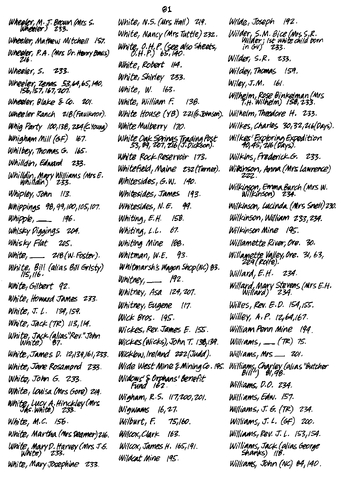 81
Wheeler, M. J. Brown (Mrs. S. Wheeler) 233.
Wheeler, Mathew Mitchell 157.
Wheeler, P.A. (Mrs. Dr. Henry Bones) 216.
Wheeler, S. 233.
Wheeler, Jonas 53,64,65,140, 156,157,167,207.
Wheeler, Blake & Co. 201.
Wheeler Ranch 218 (Faulknor).
Whig Party 100,138,
Whigham Mill (GF) 167.
Whilbey, Thomas G. 165.
Whilldin, Edward 233.
Whilldin, Mary Williams (Mrs E. Whilldin) 233.
Whipley, John 113.
Whippings 98,99,100,105,107.
Whipple, ___ 196.
Whisky Diggings 204.
Whisky Flat 205.
White, ___ 218 (W. Foster).
White, Bill (alias Bill Gristy) 115,116.
White, Gilbert 92.
White, Howard James 233.
White, J. L. 134,159.
White, Jack (TR) 113,114.
White, Jack (alias "Rev." John White) 87.
White, James D. 12,134,161,233.
White, Jane Rosamond 233.
White, John G. 233.
White, Louisa (Mrs Gore) 219.
White, Lucy A. Hinckley (Mrs Jas. White) 233.
White, M.C. 156.
White, Martha (Mrs Seamer) 216.
White, Mary D. Harvey (Mrs J.G. White) 233.
White, Mary Josephine 233.
White, N.S. (Mrs Hall) 219.
White, Nancy (Mrs Tuttle) 232.
White, O.H.P. (See also Sheats, O.H.P.) 65,140.
White, Robert 114.
White, Shirley 233.
White, W. 163.
White, William F. 138.
White House (YB) 221 (B. Jenison).
White Mulberry 170.
White Oak Springs Trading Post 53,89,207,216 (J. Dickson).
White Rock Reservoir 173.
Whitefield, Maine 232 (Turner).
Whitesides, G.W. 140.
Whitesides, James 193.
Whitesides, N.E. 99.
Whiting, E.H. 158.
Whiting, L.L. 67.
Whiting Mine 188.
Whitman, W.E. 93.
Whitmarsh's Wagon Shop (NC) 83.
Whitney, ___ 192.
Whitney, Asa 124,207.
Whitney, Eugene 117.
Wick Bros. 195.
Wickes, Rev. James E. 155.
Wickes (Wicks), John T. 138,139.
Wicklow, Ireland 222 (Judd).
Wide West Mine & Mining Co. 195.
Widows' & Orphans' Benefit Fund 162.
Wigham, R.S. 117,200,201.
Wigwams 16,27.
Wilburt, F. 75,160.
Wilcox, Clark 163.
Wilcox, James H. 165,191.
Wildcat Mine 195.
Wilde, Joseph 192.
Wilder, S.M. Bice (Mrs S.R. Wilder; 1st white child born in GV) 233.
Wilder, S.R. 233.
Wilder, Thomas 159.
Wiley, J.M. 161.
Wilhelm, Rose Binkelman (Mrs T.H. Wilhelm) 158,233.
Wilhelm, Theodore H. 233.
Wilkes, Charles 30,32,46 (Days).
Wilkes' Exploring Expedition 40,45,216 (Days).
Wilkins, Frederick G. 233.
Wilkinson, Anna (Mrs Lawrence) 222.
Wilkinson, Emma Burch (Mrs W. Wilkinson) 234.
Wilkinson, Lucinda (Mrs Snell) 230.
Wilkinson, William 233,234.
Wilkinson Mine 195.
Willamette River, Ore. 30.
Willamette Valley, Ore. 31, 63, 229 (Rolfe).
Willard, E.H. 234.
Willard, Mary Stevens (Mrs E.H. Willard) 234.
Willes, Rev. E.D. 154,155.
Willey, A.P. 12,64,167.
William Penn Mine 194.
Williams, ___ (TR) 75.
Williams, Mrs ___ 201.
Williams, Charley (alias "Butcher Bill") 91,98.
Williams, D.O. 234.
Williams, Edw. 157.
Williams, J.G. (TR) 234.
Williams, J.L. (GF) 200.
Williams, Rev. J.L. 153,154.
Williams, Jack (alias George Shanks) 118.
Williams, John (NC) 84,140.